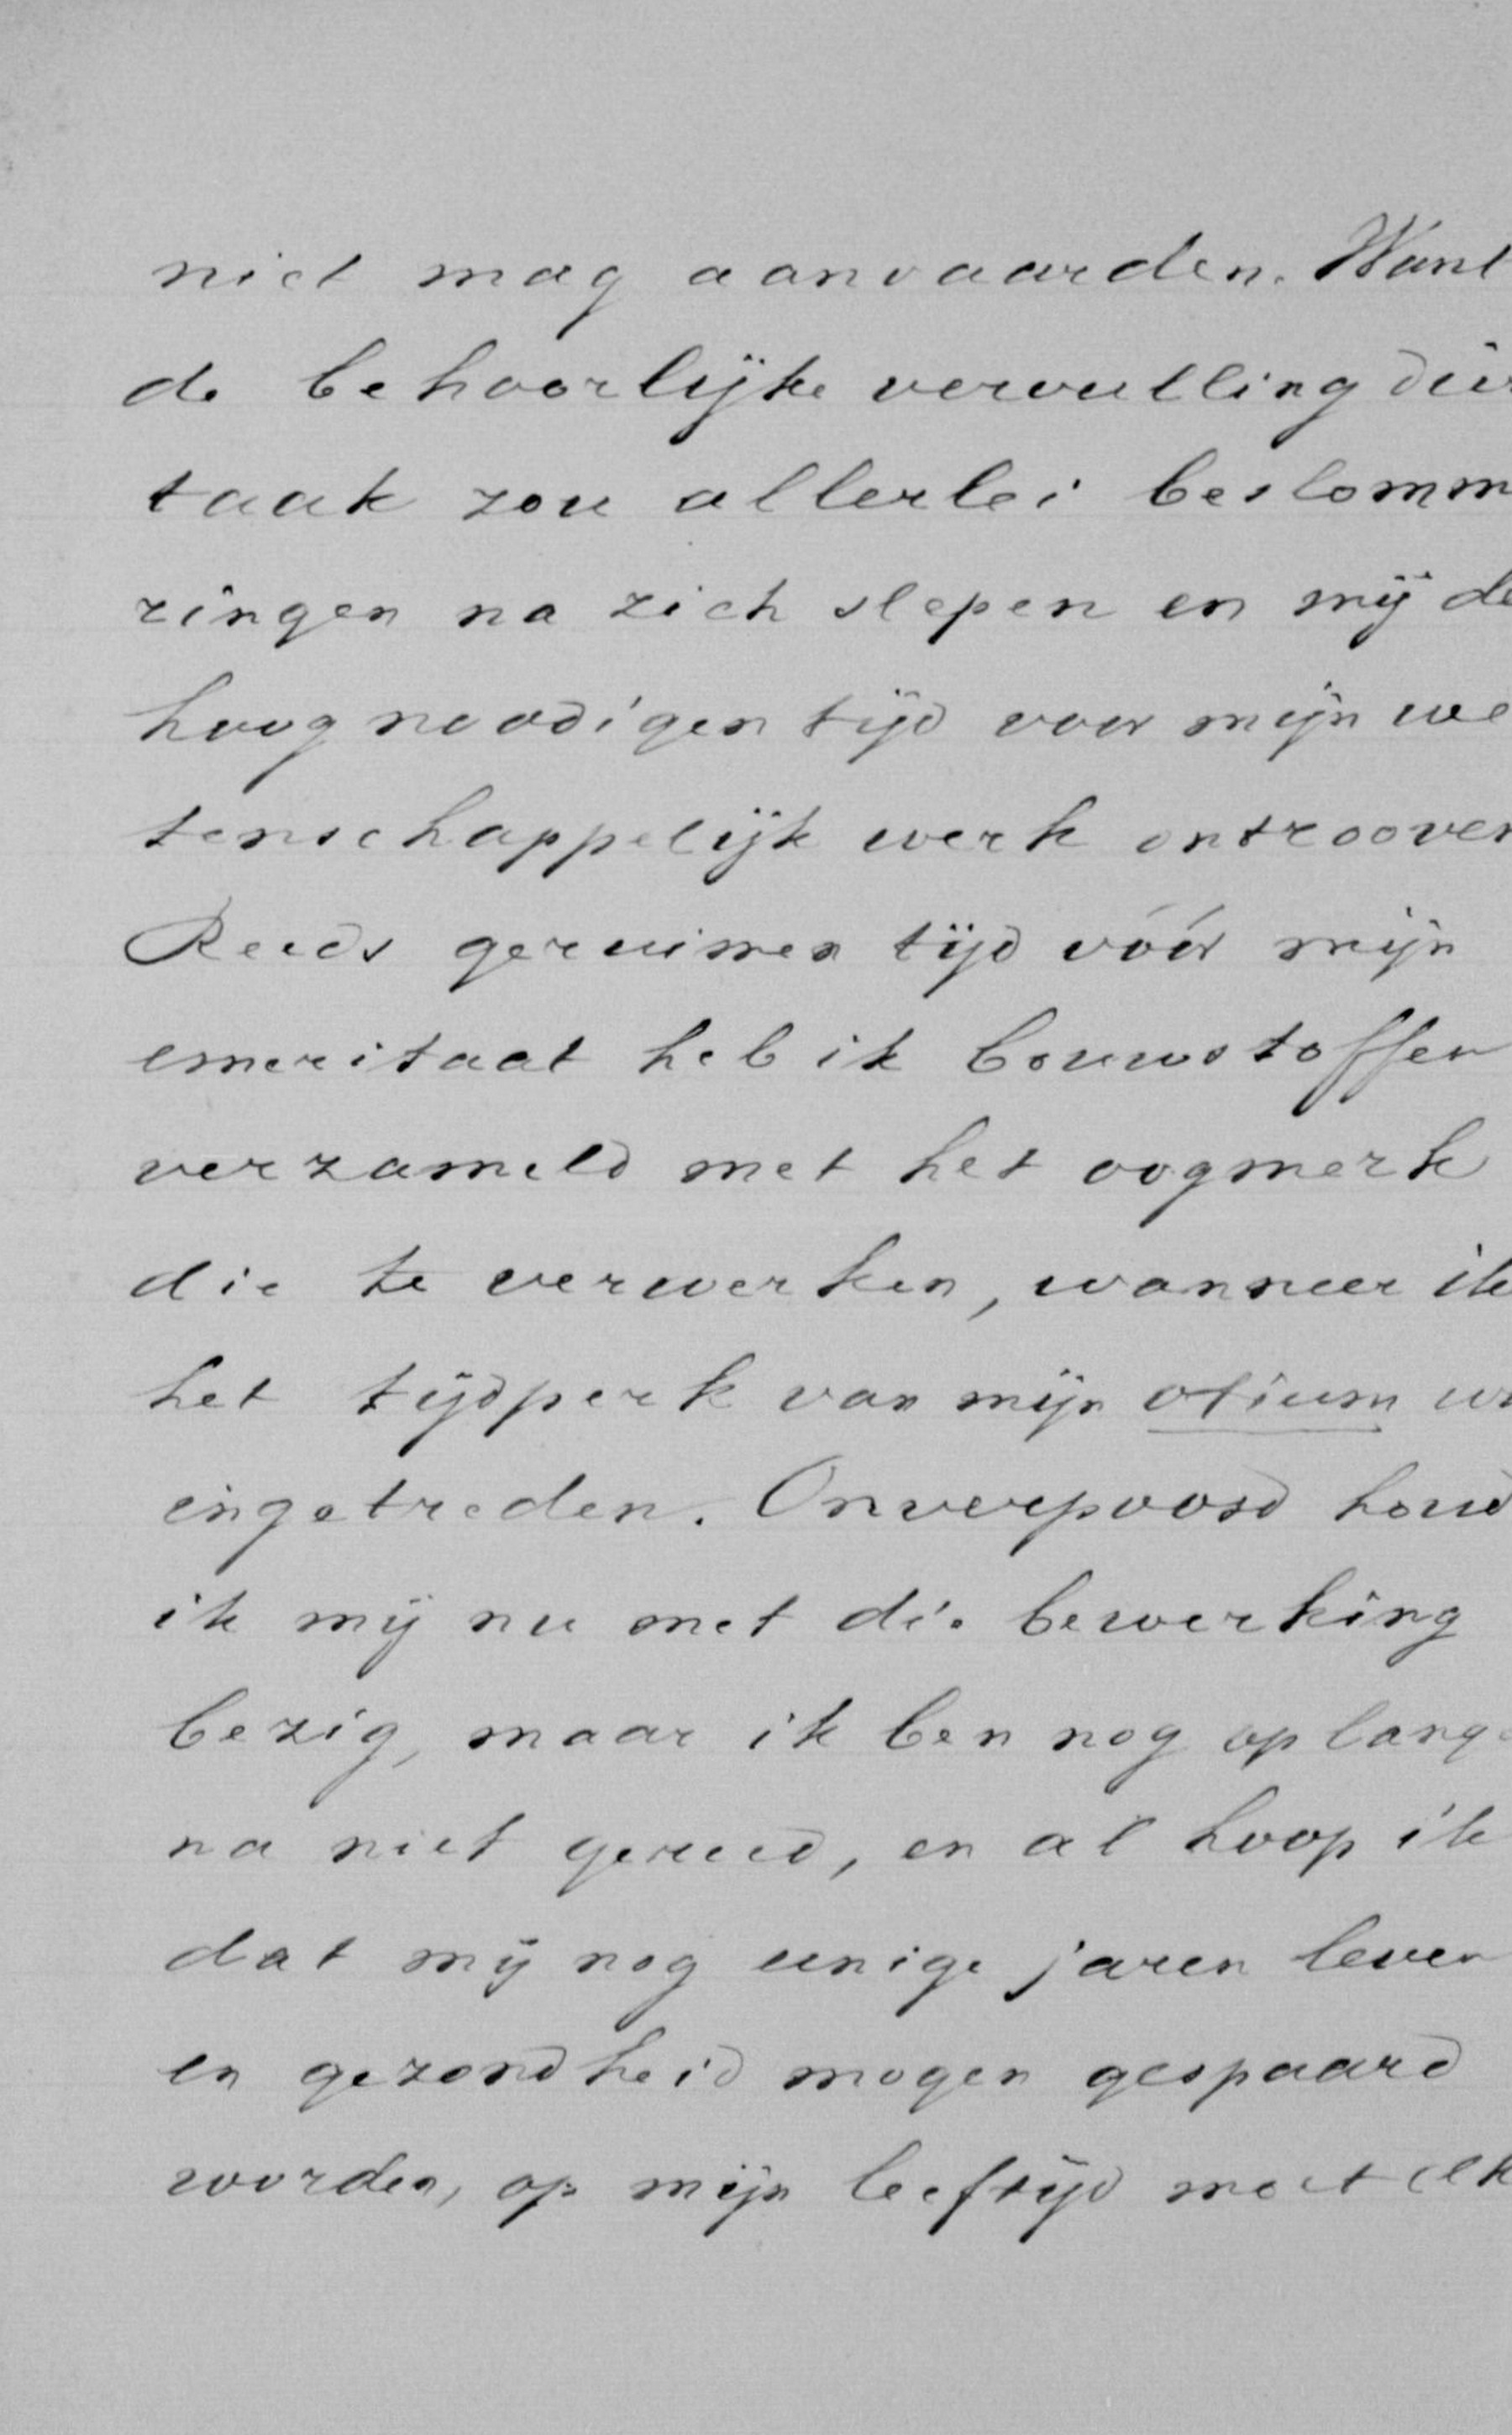 niet mag aanvaarden. Want
de behoorlijke vervulling dier
taak zou allerlei beslomm
ringen na zich slepen en mij de
hoognoodigen tijd voor mijn we
tenschappelijk werk ontrooven
Reeds geruimen tijd vóór mijn
emeritaat heb ik bouwstoffen
verzameld met het oogmerk
die te verwerken, wanneer ik
het tijdperk van mijn otium
ingetreden. Onverpoosd houd
ik mij nu met die bewerking
bezig, maar ik ben nog op lange
na niet gereed, en al hoop ik
dat mij nog eenige jaren leven
en gezondheid mogen gespaard
worden, op mijn leeftijd moet elk